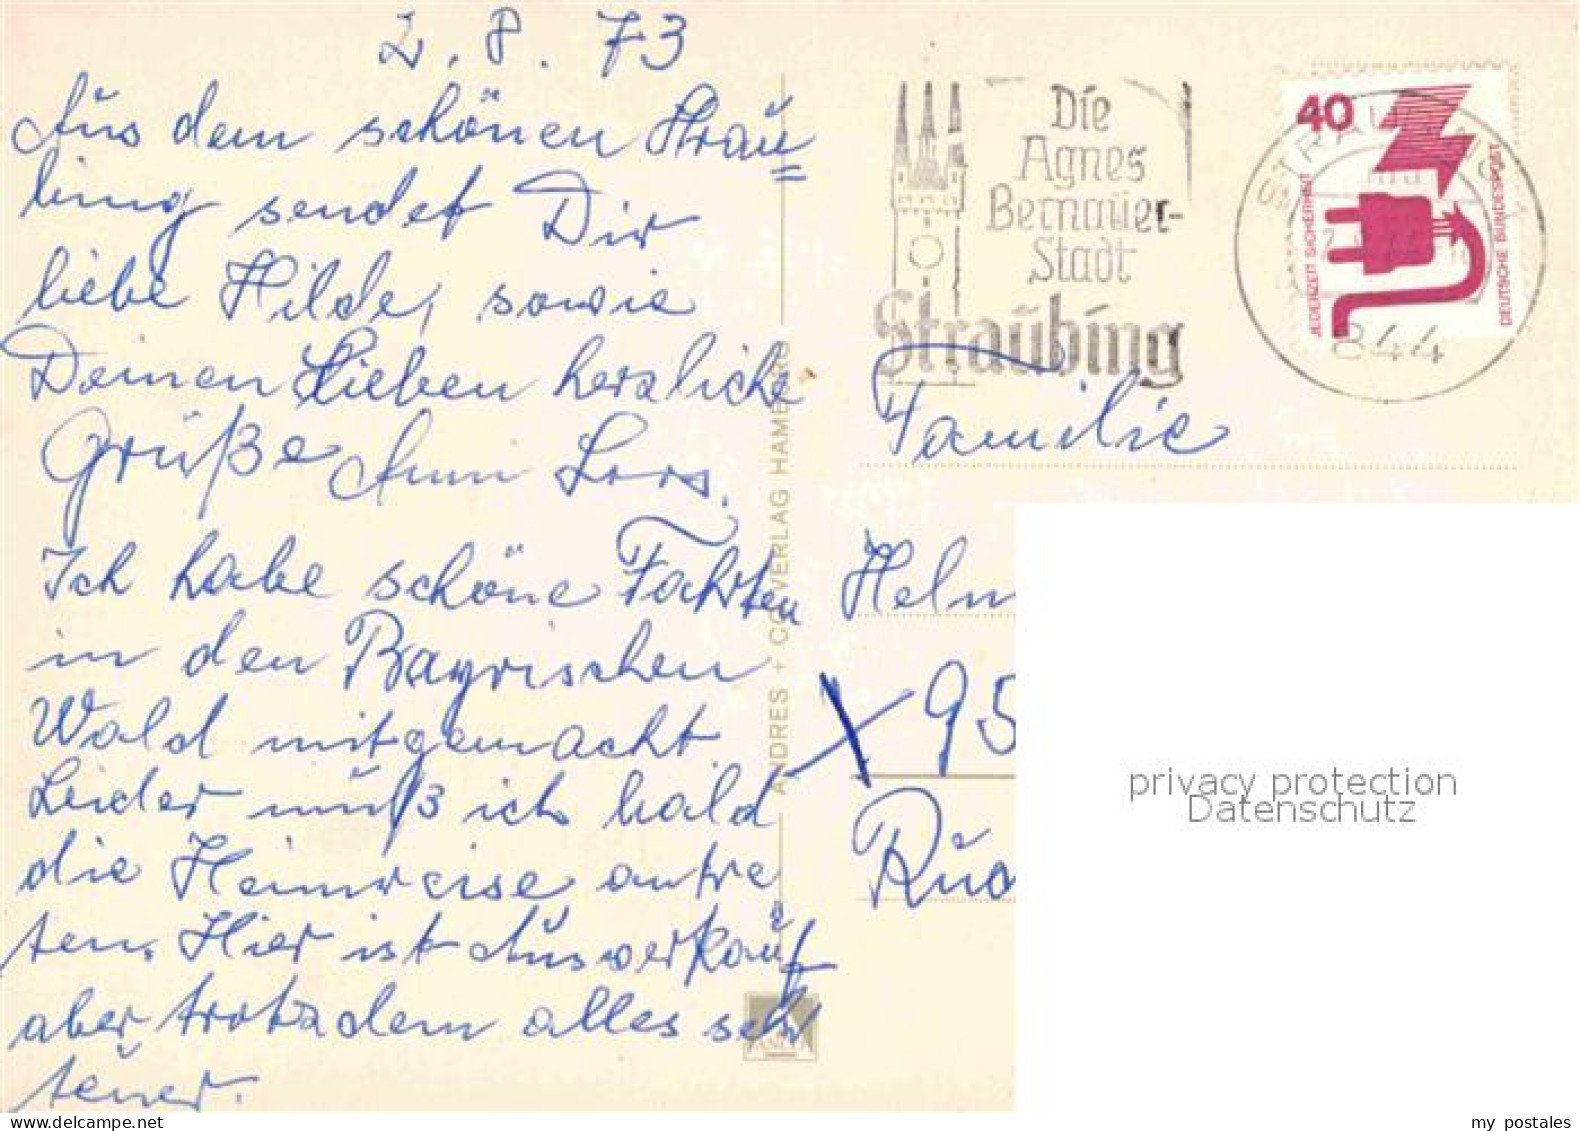 2. 8. 73
Aus dem schönen Strau=
bing sendet Dir
liebe Hilde, sowie
Deinen Lieben herzliche
Grüße Anni Loos.
Ich habe schöne Fahrten
in den Bayrischen
Wald mitgemacht.
Leider muß ich bald
die Heimreise antre
ten. Hier ist Ausverkauf
aber trotzdem alles sehr
teuer.
ANDRES + CO VERLAG HAMBURG
Die
Agnes
Bernauer-
Stadt
Straubing
STRAUBING
844
40
JEDERZEIT SICHERHEIT
DEUTSCHE BUNDESPOST
Familie
Helm
95
Rud
privacy protection
Datenschutz
www.delcampe.net
my postales